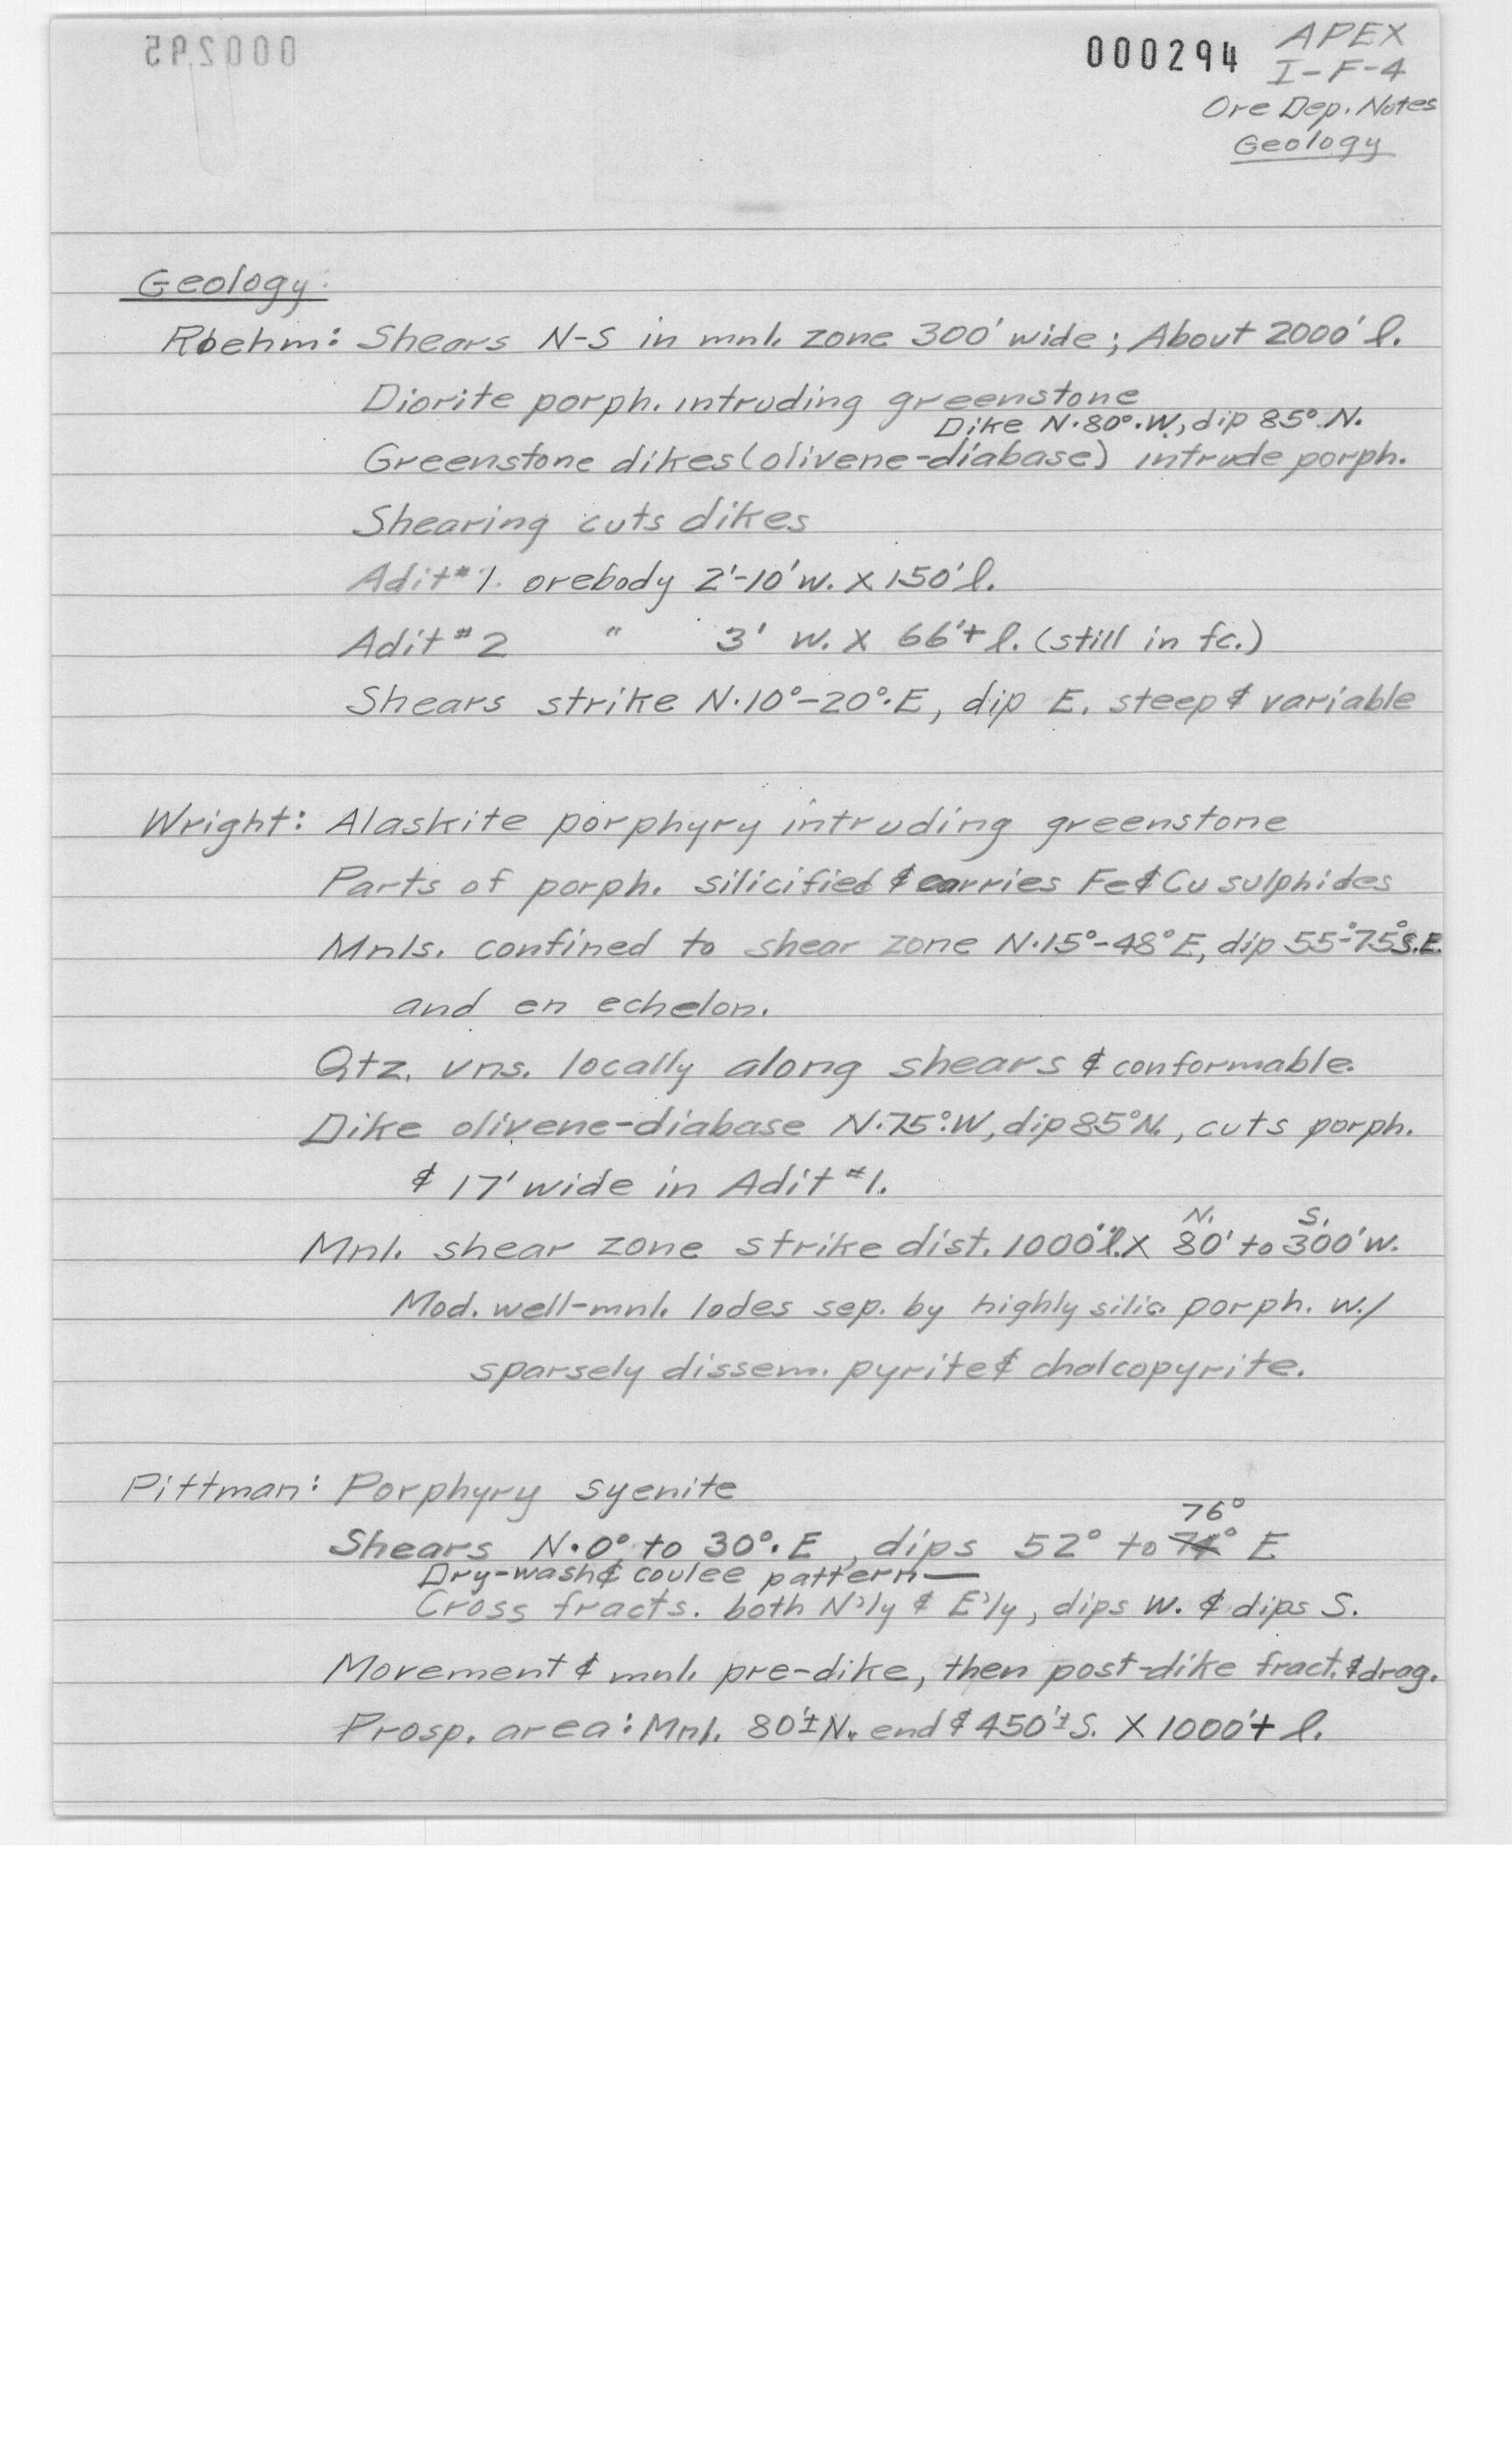 000295
000294 APEX
I-F-4
Ore Dep. Notes
Geology
Geology.
Roehm: Shears N-S in mnl. zone 300' wide; About 2000' l.
Diorite porph. intruding greenstone
Dike N.80°.W., dip 85° N.
Greenstone dikes (olivene-diabase) intrude porph.
Shearing cuts dikes
Adit #1. orebody 2'-10' w. x 150' l.
Adit #2 " 3' w. x 66'+ l. (still in fc.)
Shears strike N.10°-20°.E, dip E. steep & variable
Wright: Alaskite porphyry intruding greenstone
Parts of porph. silicified & carries Fe & Cu sulphides
Mnls. confined to shear zone N.15°-48°E, dip 55°-75°S.E.
and en echelon.
Qtz. vns. locally along shears & conformable.
Dike olivene-diabase N.75°.W, dip 85°N., cuts porph.
& 17' wide in Adit #1.
N. S.
Mnl. shear zone strike dist. 1000' l. x 80' to 300' w.
Mod. well-mnl. lodes sep. by highly silic. porph. w./
sparsely dissem. pyrite & chalcopyrite.
Pittman: Porphyry syenite
76°
Shears N.0° to 30°.E, dips 52° to 74° E
Dry-wash & coulee pattern—
Cross fracts. both N'ly & E'ly, dips W. & dips S.
Movement & mnl. pre-dike, then post-dike fract. & drag.
Prosp. area: Mnl. 80'± N. end & 450'± S. X 1000'+ l.